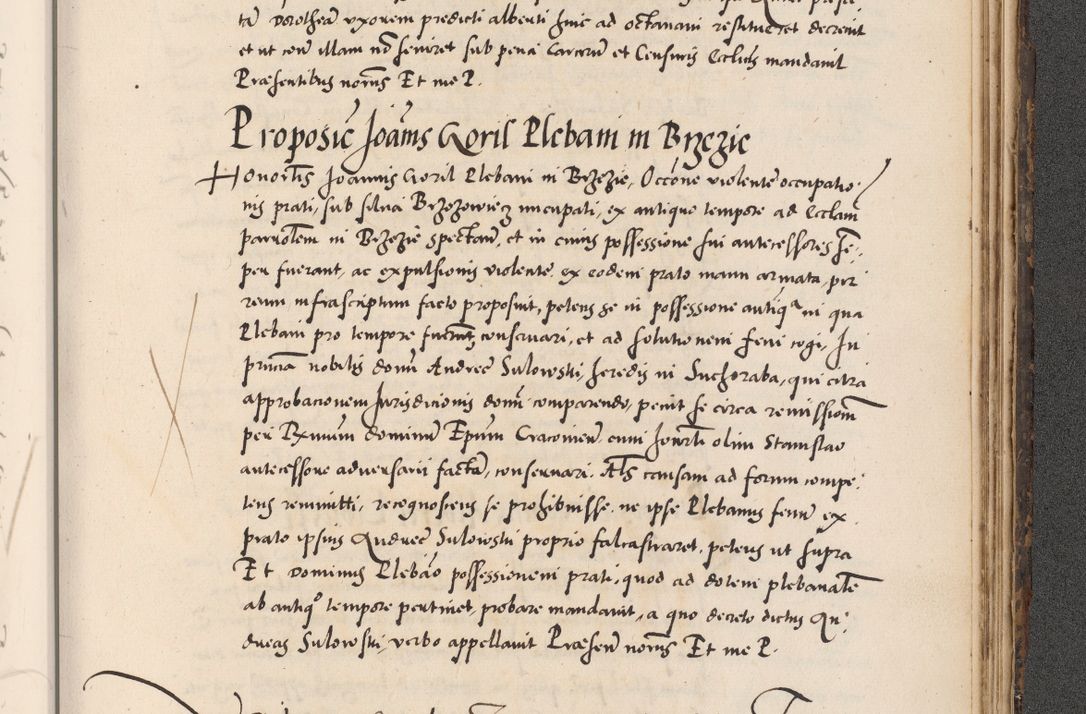 tā Dorotheā uxorem predicti alberti hinc ad octanam restitueret decrevit
et ut eciā illam nō feriret sub pena Carcerū et Censuris Ecclīs mandavit
Præsentibus notīs Et me P.
Proposiē Joānis Goril Plebani in Brzezie
Honorlīs Joannis Goril Plebani in Brzezie, Occōne violente occupatio
nis prati, sub silva Brzezowiecz nuncupati, ex antiquo tempore ad Eccliam
parrolem in Brzezie spectan, et in cuius possessione sui antecessores se
per fuerant, ac expulsionis violente ex eodem prato manu armata, per
reum infrascriptum facto proposuit, petens se in possessione antiqa in qua
Plebani pro tempore fuerunt conservari, et ad solutionem feni cogi, In
priñia nobilis domī Andreē Sulowski, heredis in Suchoraba, qui citra
approbacionem Jurisdicionis domī comparendo, petiit se circa remissionē
per Rxmum dominū Epūm Cracovieñ cum honorli olim Stanislao
antecessore adversarii factā, conservari. Als causam ad forum compe
tens remitti, recognoscens se prohibuisse, ne ipse Plebanus fenū ex
prato ipsius Andreē Sulowski proprio falcastraret, petens ut supra
Et Dominus Plebāo possessionem prati, quod ad dotem plebanalē
ab antiqo tempore pertinet, probare mandavit, a quo decreto dictus An
dreas Sulowski, verbo appellavit Præseñ notīs Et me P.